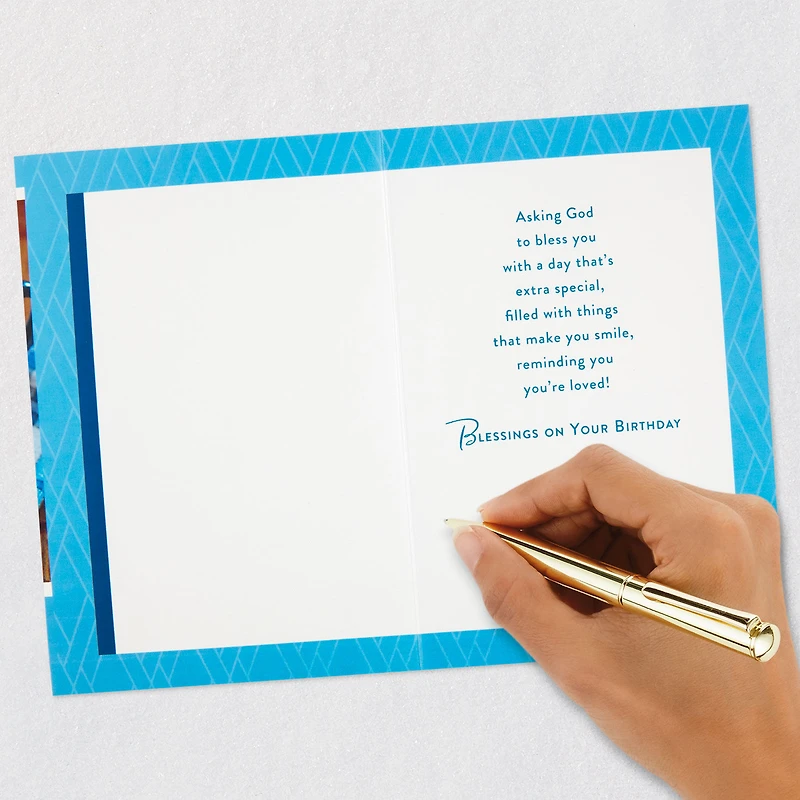 Asking God
to bless you
with a day that's
extra special,
filled with things
that make you smile,
reminding you
you're loved!
Blessings on Your Birthday